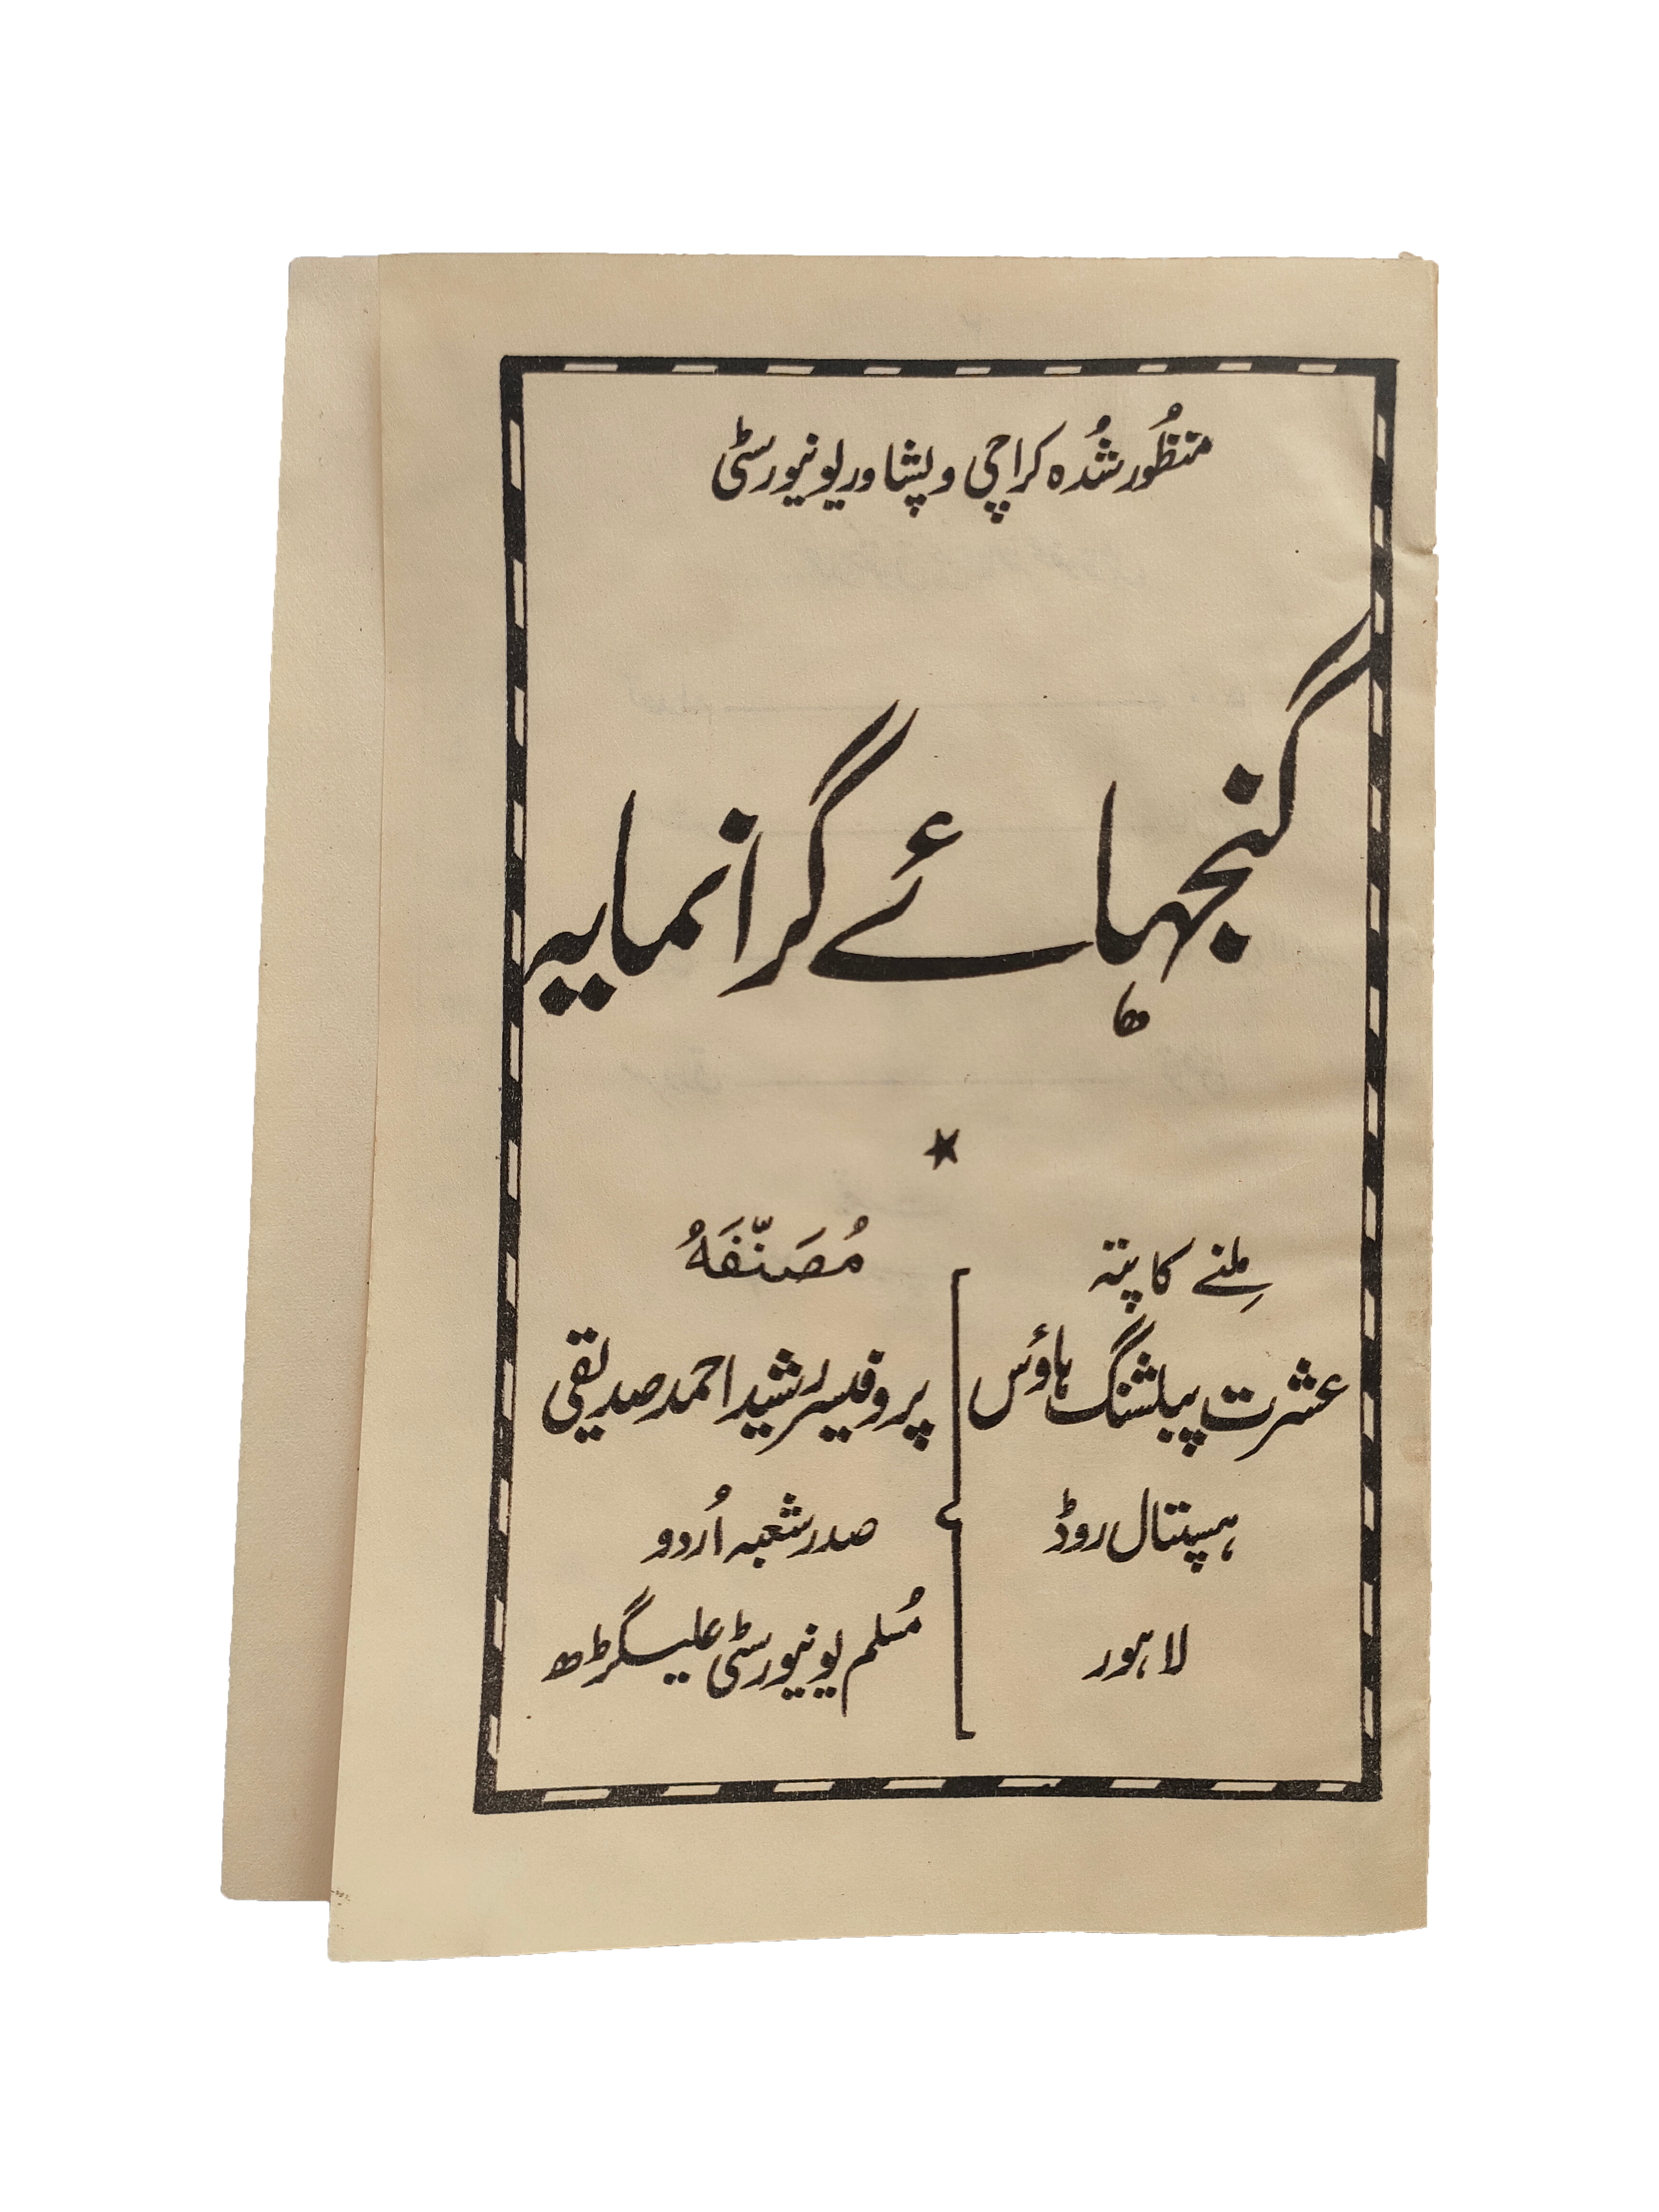 منظُور شُدہ کراچی و پشاور یونیورسٹی
گنجہائے گرانمایہ
مِلنے کا پتہ
عشرت پبلشنگ ہاؤس
ہسپتال روڈ
لاہور
مُصَنّفَہُ
پروفیسر رشید احمد صدیقی
صدر شعبہ اُردو
مُسلم یونیورسٹی علیگڑھ